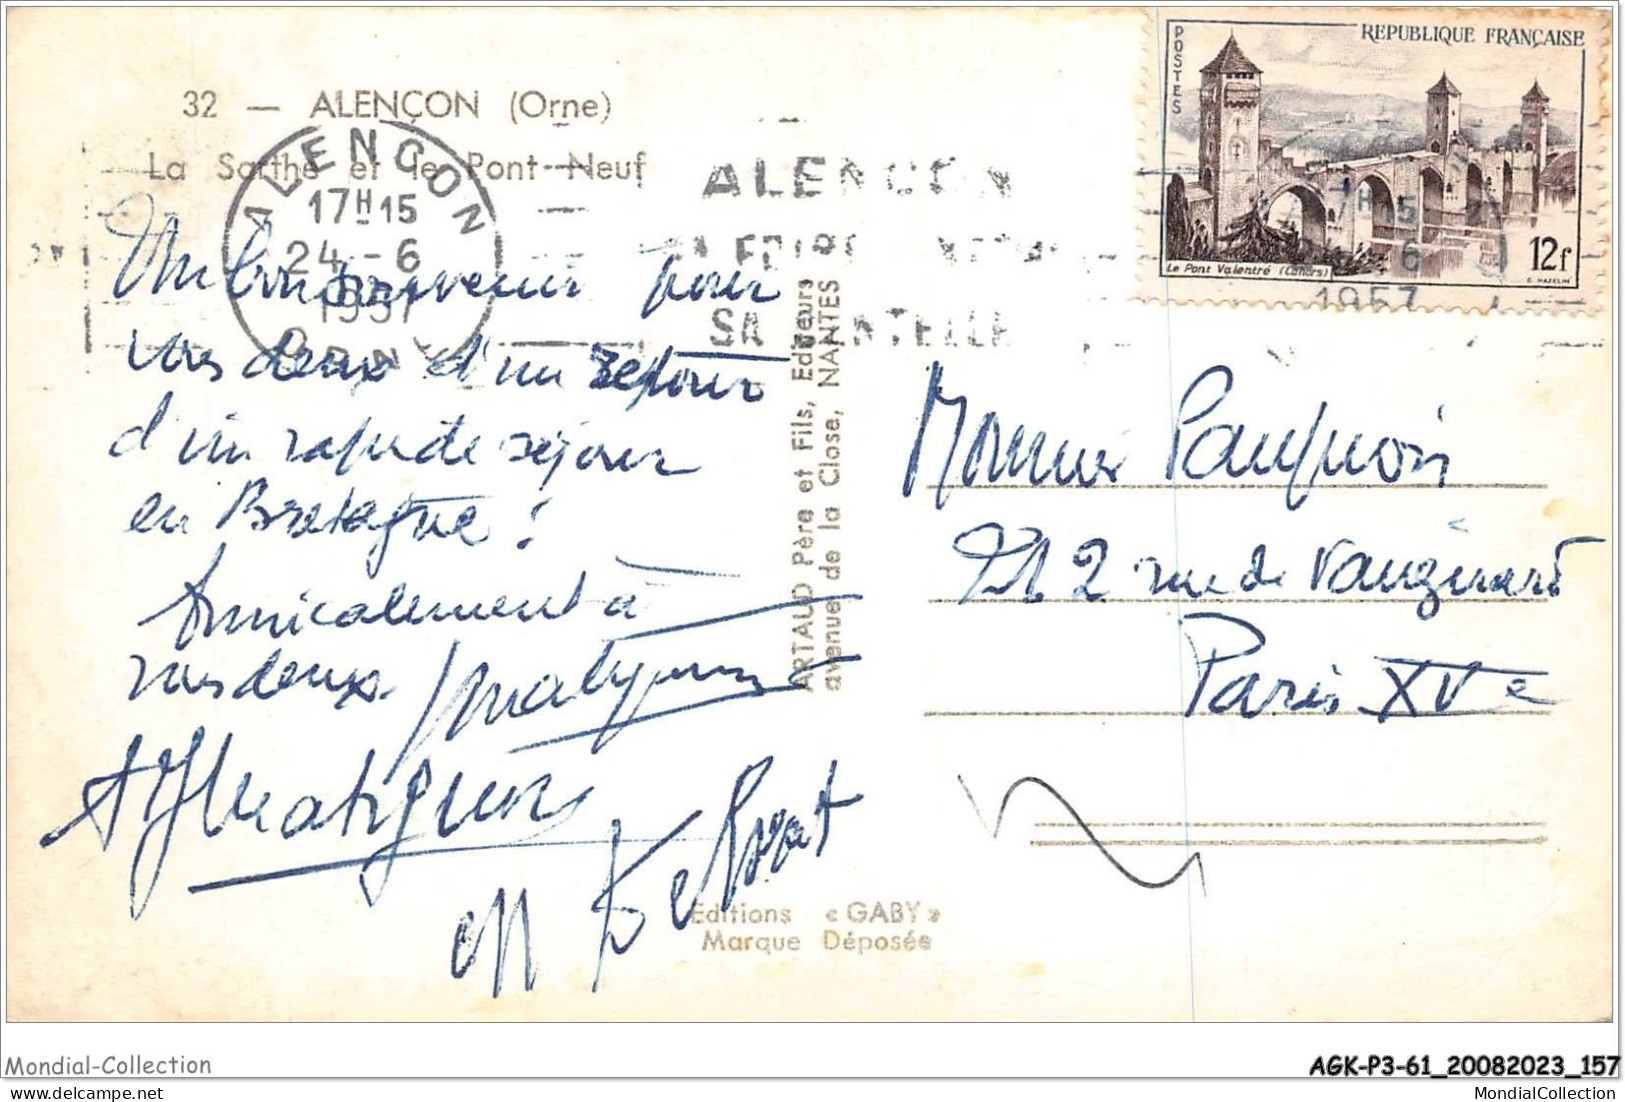 32 — ALENÇON (Orne)
La Sarthe et le Pont-Neuf
ALENCON
17H15
24-6
1957
ORNE
ALENCON
SA DENTELLE
POSTES
REPUBLIQUE FRANÇAISE
Le Pont Valentré (Cahors)
12f
C. HAZELIN
1957
Un bon souvenir pour
vos deux d'un séjour
d'un rapide séjour
en Bretagne !
Amicalement à
vos deux
ARTAUD Père et Fils, Editeurs
avenue de la Close, NANTES
Monsieur
212 rue de Vaugirard
Paris XVe
Editions « GABY »
Marque Déposée
Mondial-Collection
AGK-P3-61_20082023_157
MondialCollection